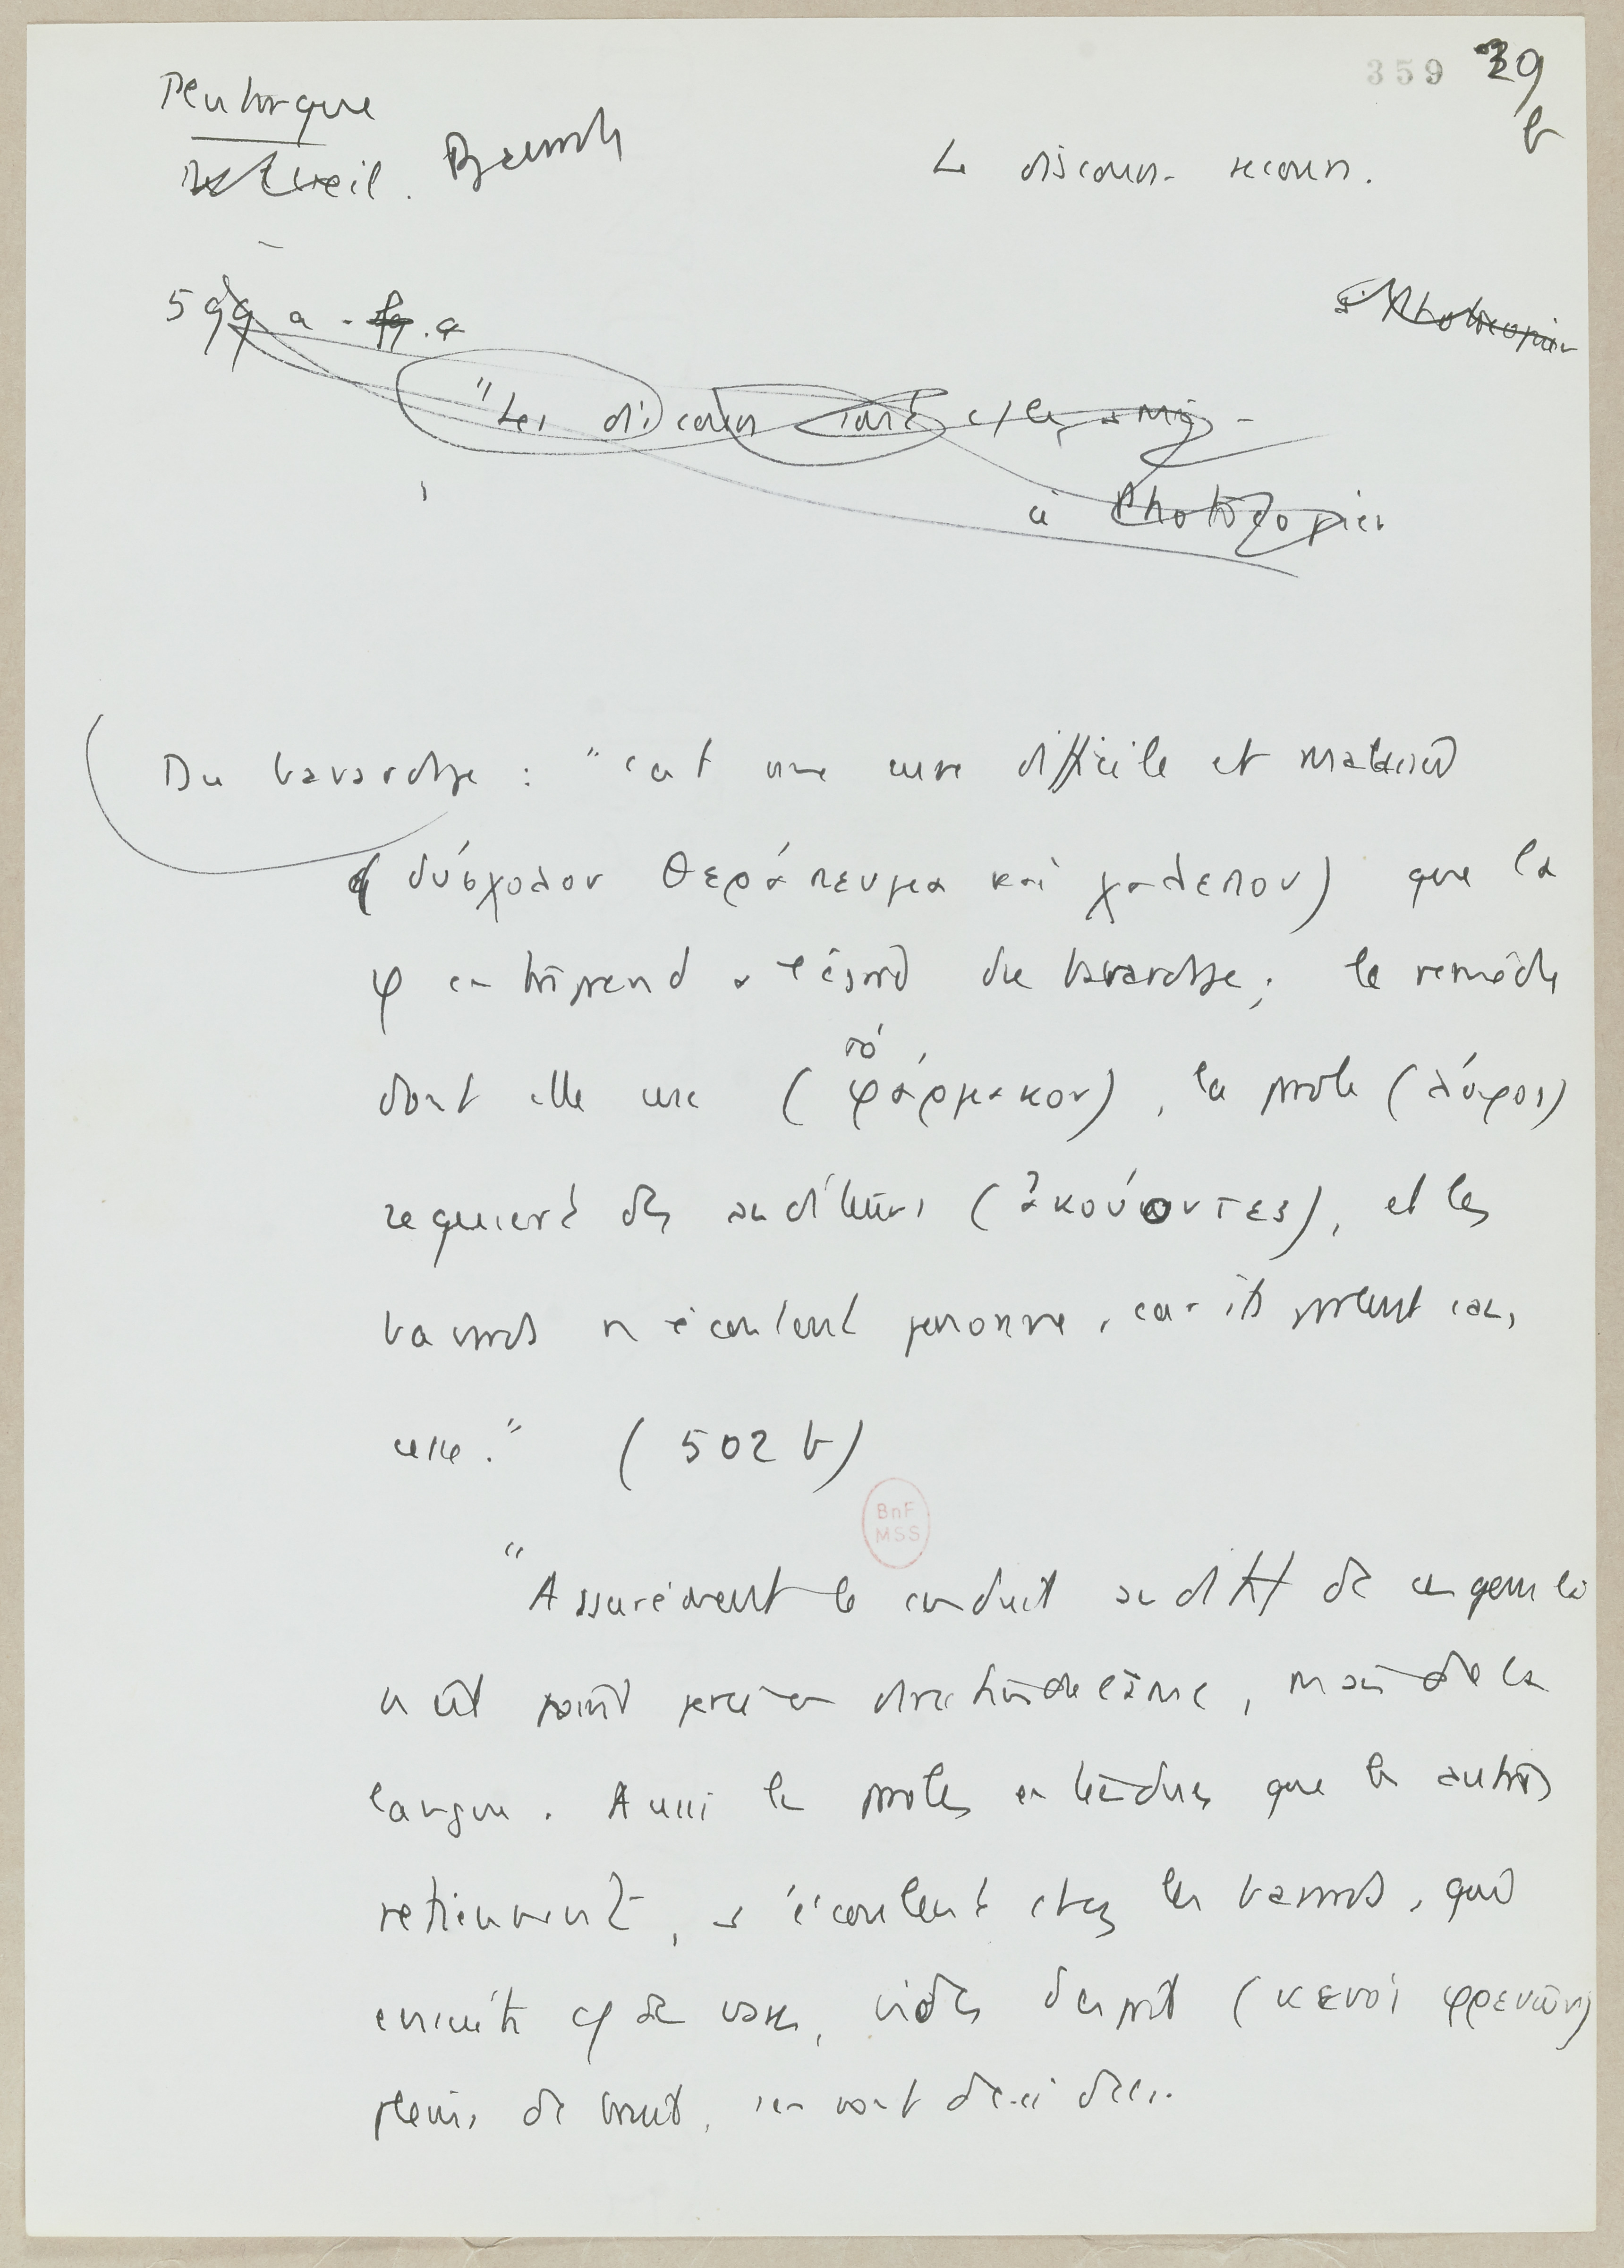 359 29
b
Plutarque
Le discours-secours.
599 a
à Photocopier
"Les discours sont
à Photocopier
Du bavardage : "c'est une cure difficile et malaisée
(δύσχολον θεράπευμα καὶ χαλεπον) que la
φ entreprend à l'égard du bavardage; le remède
dont elle use (τὸ φάρμακον), la parole (λόγος)
requiert des auditeurs (ἀκούοντες), et les
bavards n'écoutent personne, car ils parlent sans
cesse." (502 b)
BnF
MSS
"Assurément le conduit auditif de ces gens là
n'est point percé en direction de l'âme, mais de la
langue. Aussi les paroles entendues que les autres
retiennent, s'écoulent chez les bavards, qui
ensuite cf de vases, vides d'esprit (κενοὶ φρενῶν)
pleins de bruit, s'en vont de-ci de-là.